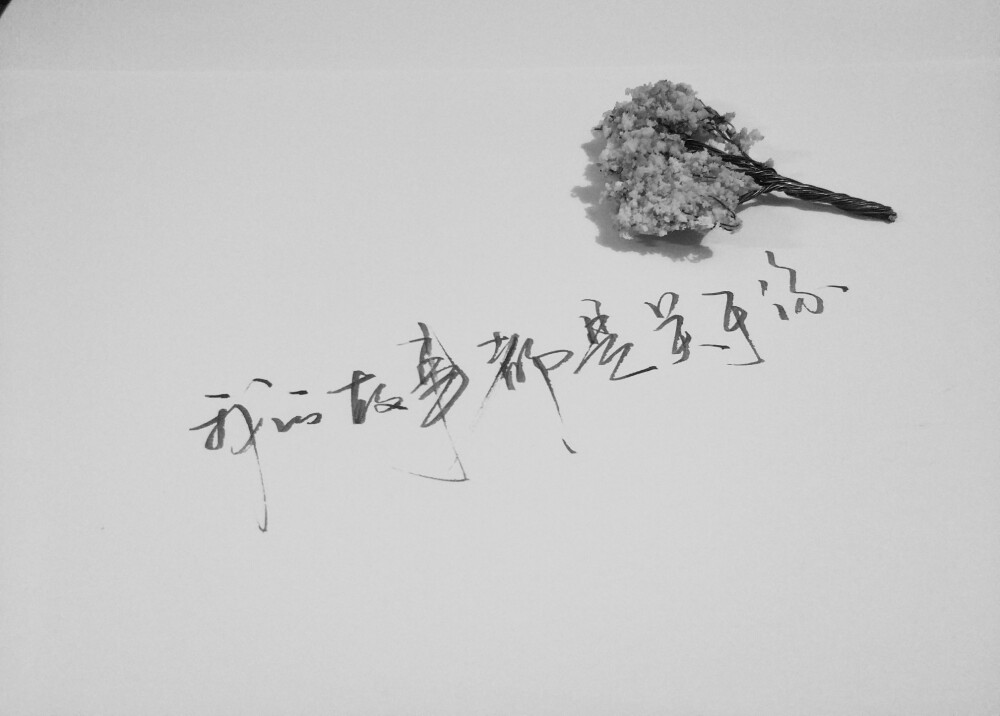 我的故事都是关于你